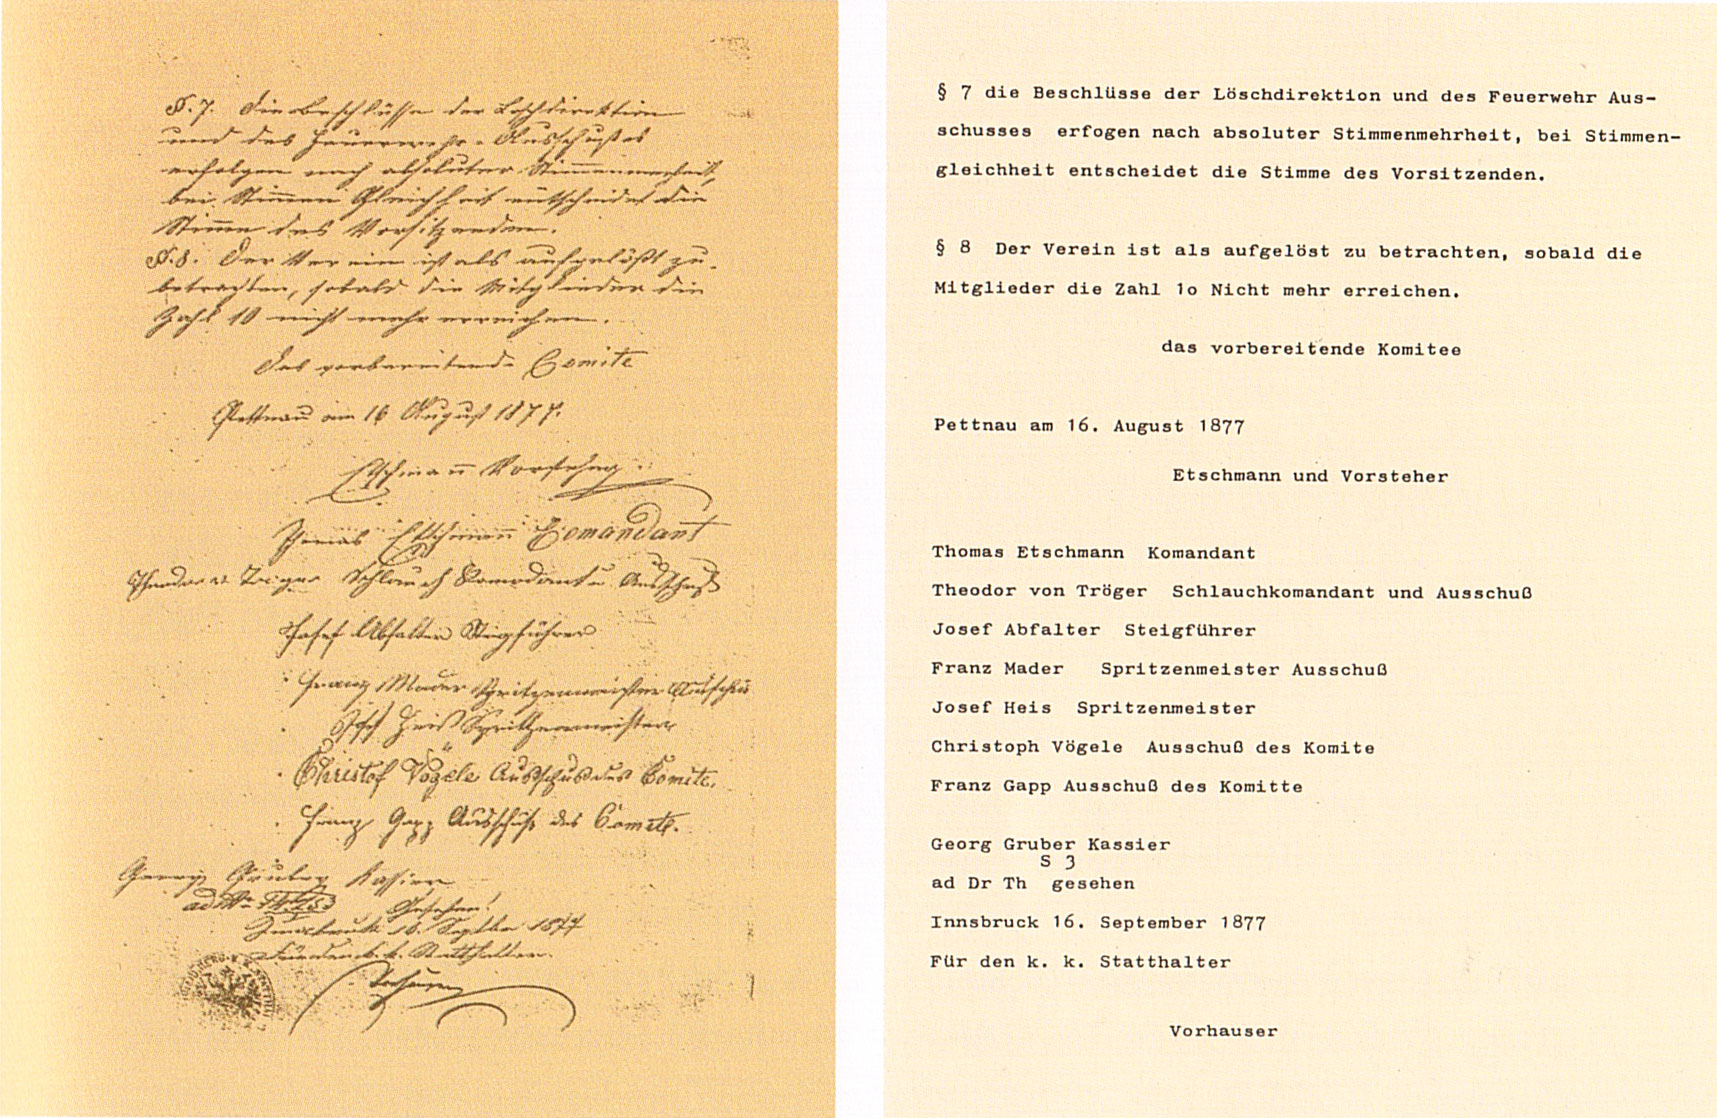 §.7. Die Beschlüsse der Löschdirektion
und des Feuerwehr-Ausschußes
erfolgen nach absoluter Stimmenmehrheit,
bei Stimmen Gleichheit entscheidet die
Stimme des Vorsitzenden.
§.8. Der Verein ist als aufgelößt zu
betrachten, sobald die Mitglieder die
Zahl 10 nicht mehr erreichen.
Das vorbereitende Comite
Pettnau am 16 August 1877.
Etschmann Vorsteher
Thomas Etschmann Comandant
Theodor v. Schlauch Comodant u Ausschuß
Josef Abfalter Steigführer
Franz Mader Spritzenmeister Ausschuß
Josef Heiß Spritzenmeister
Christof Vögele Ausschuss des Comite.
Franz Gapp Ausschuß des Comite.
Georg Gruber Kassier
Gesehen!
Innsbruck 16. Septbr 1877
Für den k. k. Statthalter
§ 7 die Beschlüsse der Löschdirektion und des Feuerwehr Aus-
schusses erfogen nach absoluter Stimmenmehrheit, bei Stimmen-
gleichheit entscheidet die Stimme des Vorsitzenden.
§ 8 Der Verein ist als aufgelöst zu betrachten, sobald die
Mitglieder die Zahl 1o Nicht mehr erreichen.
das vorbereitende Komitee
Pettnau am 16. August 1877
Etschmann und Vorsteher
Thomas Etschmann Komandant
Theodor von Tröger Schlauchkomandant und Ausschuß
Josef Abfalter Steigführer
Franz Mader Spritzenmeister Ausschuß
Josef Heis Spritzenmeister
Christoph Vögele Ausschuß des Komite
Franz Gapp Ausschuß des Komitte
Georg Gruber Kassier
S 3
ad Dr Th gesehen
Innsbruck 16. September 1877
Für den k. k. Statthalter
Vorhauser